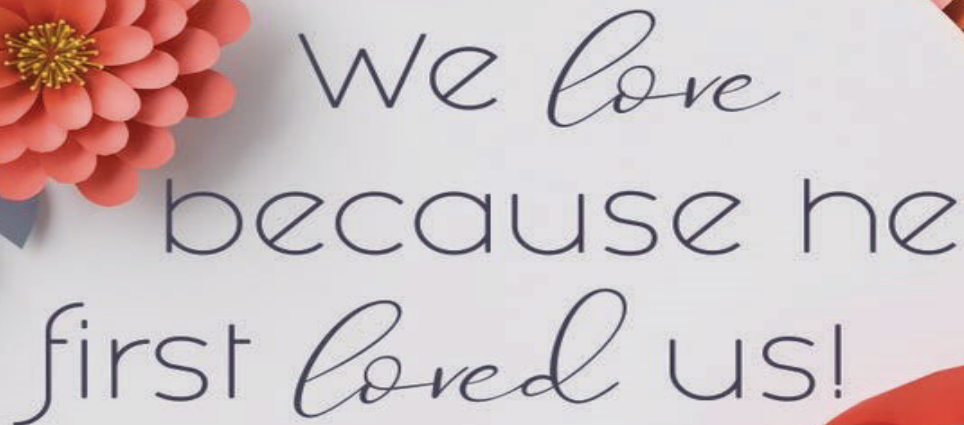 We love
because he
first loved us!